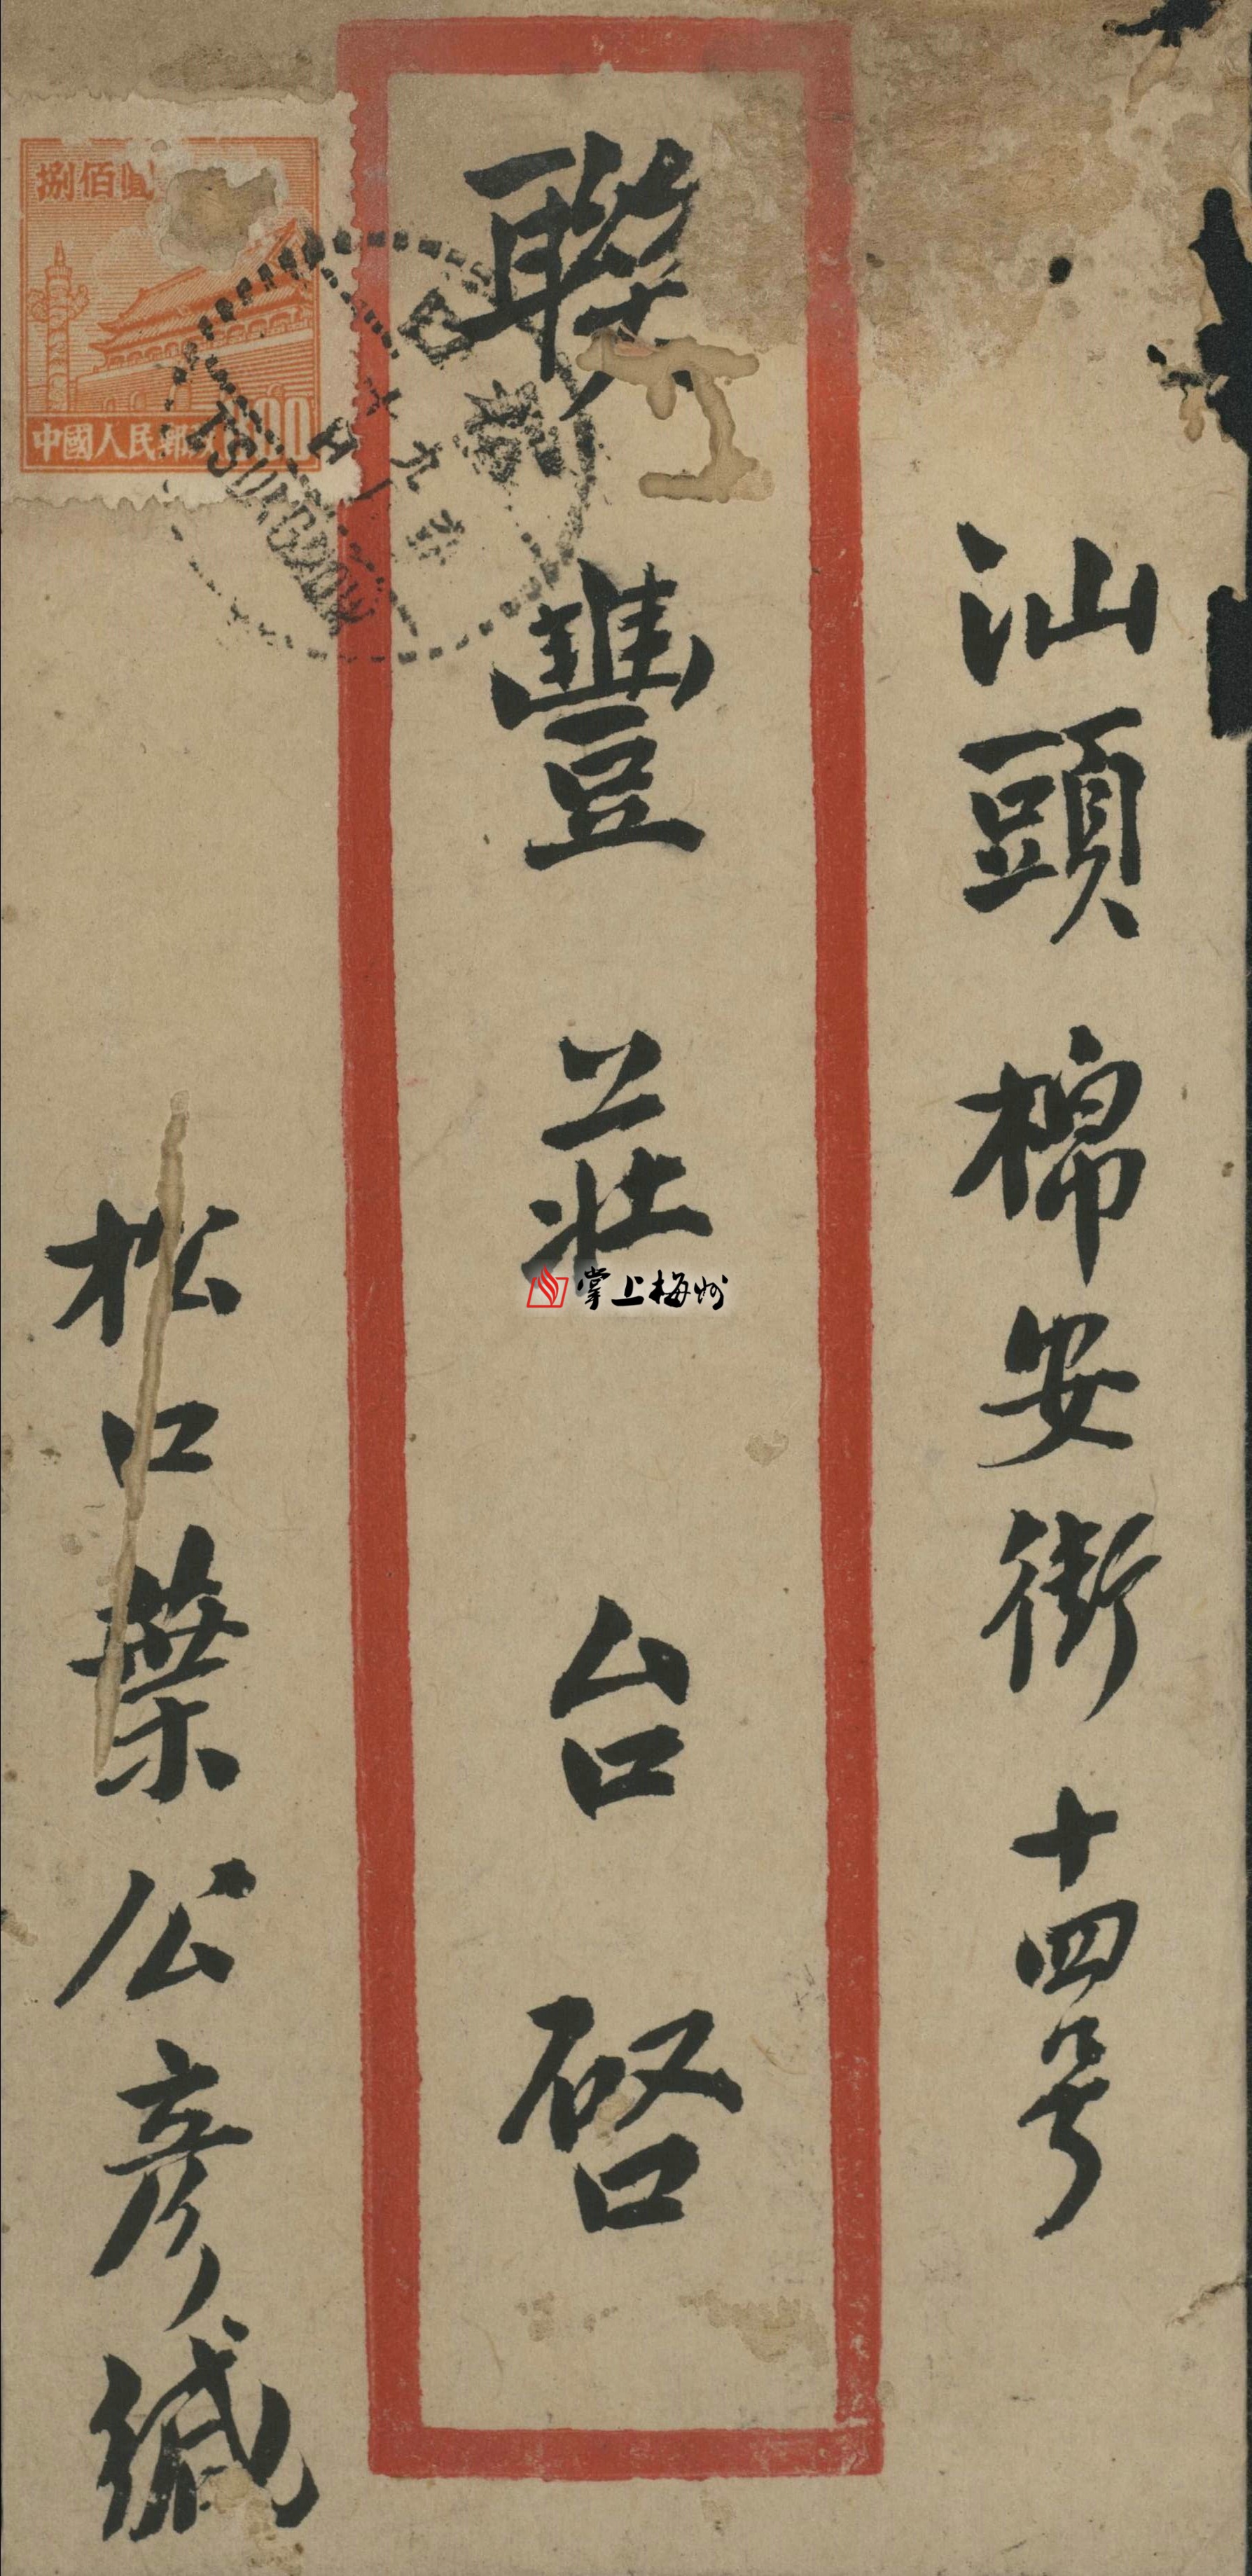 汕頭棉安街十四号
聯豐莊台啓
松口葉公彥缄
捌佰圓
中國人民郵政800
TSUNGKOW
掌上梅州